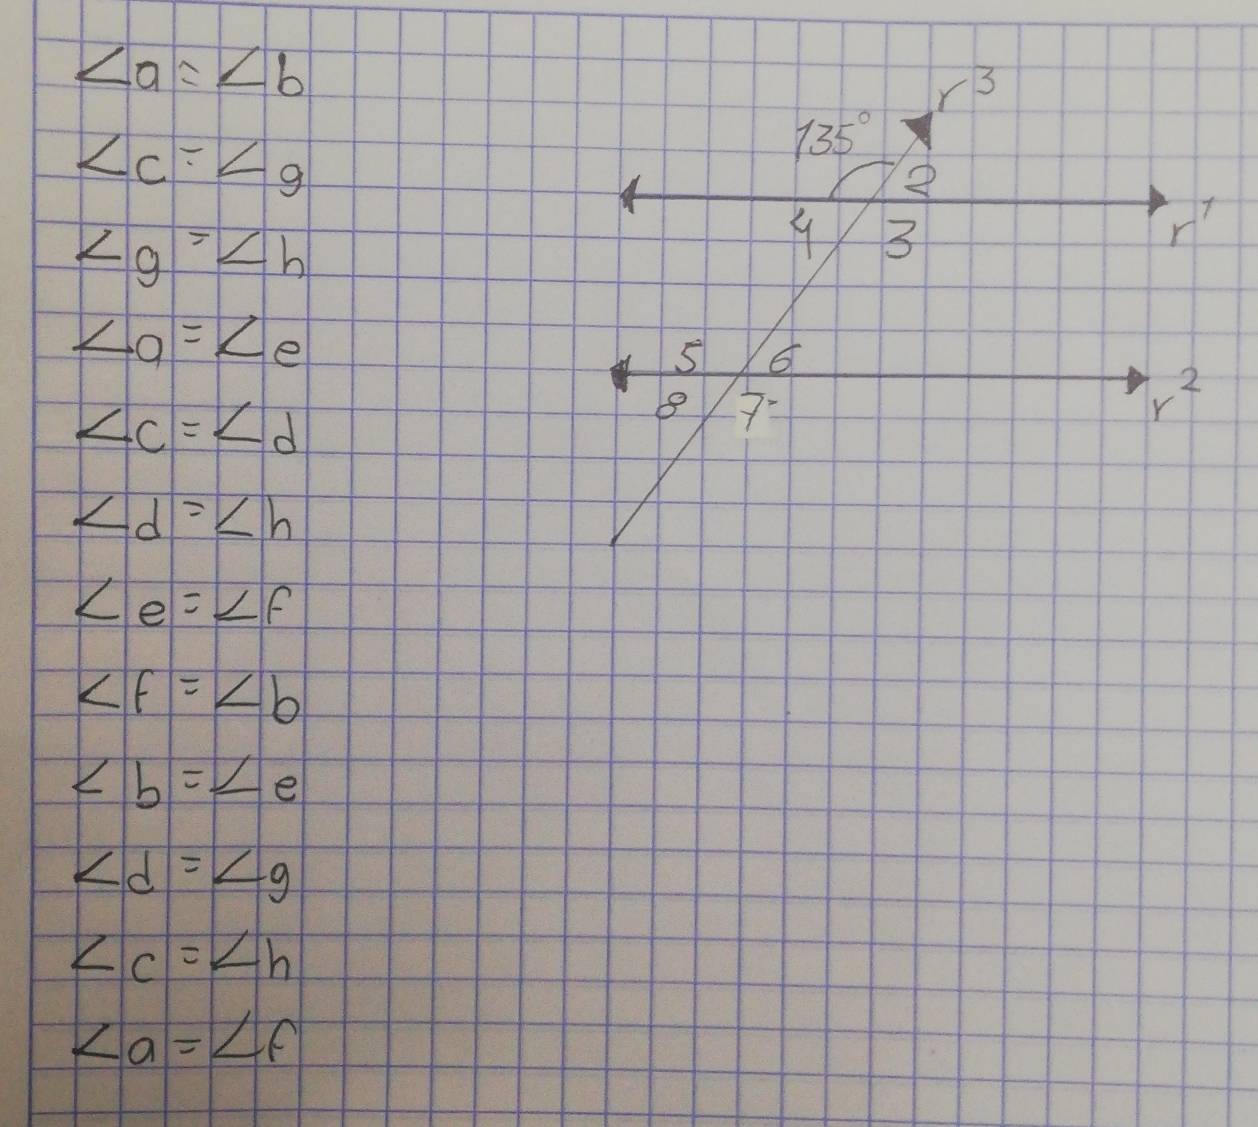 ∠a = ∠b
∠c = ∠g
∠g = ∠h
∠a = ∠e
∠c = ∠d
∠d = ∠h
∠e = ∠f
∠f = ∠b
∠b = ∠e
∠d = ∠g
∠c = ∠h
∠a = ∠f
r³
135°
2
r¹
4 3
5 6
r²
8 7